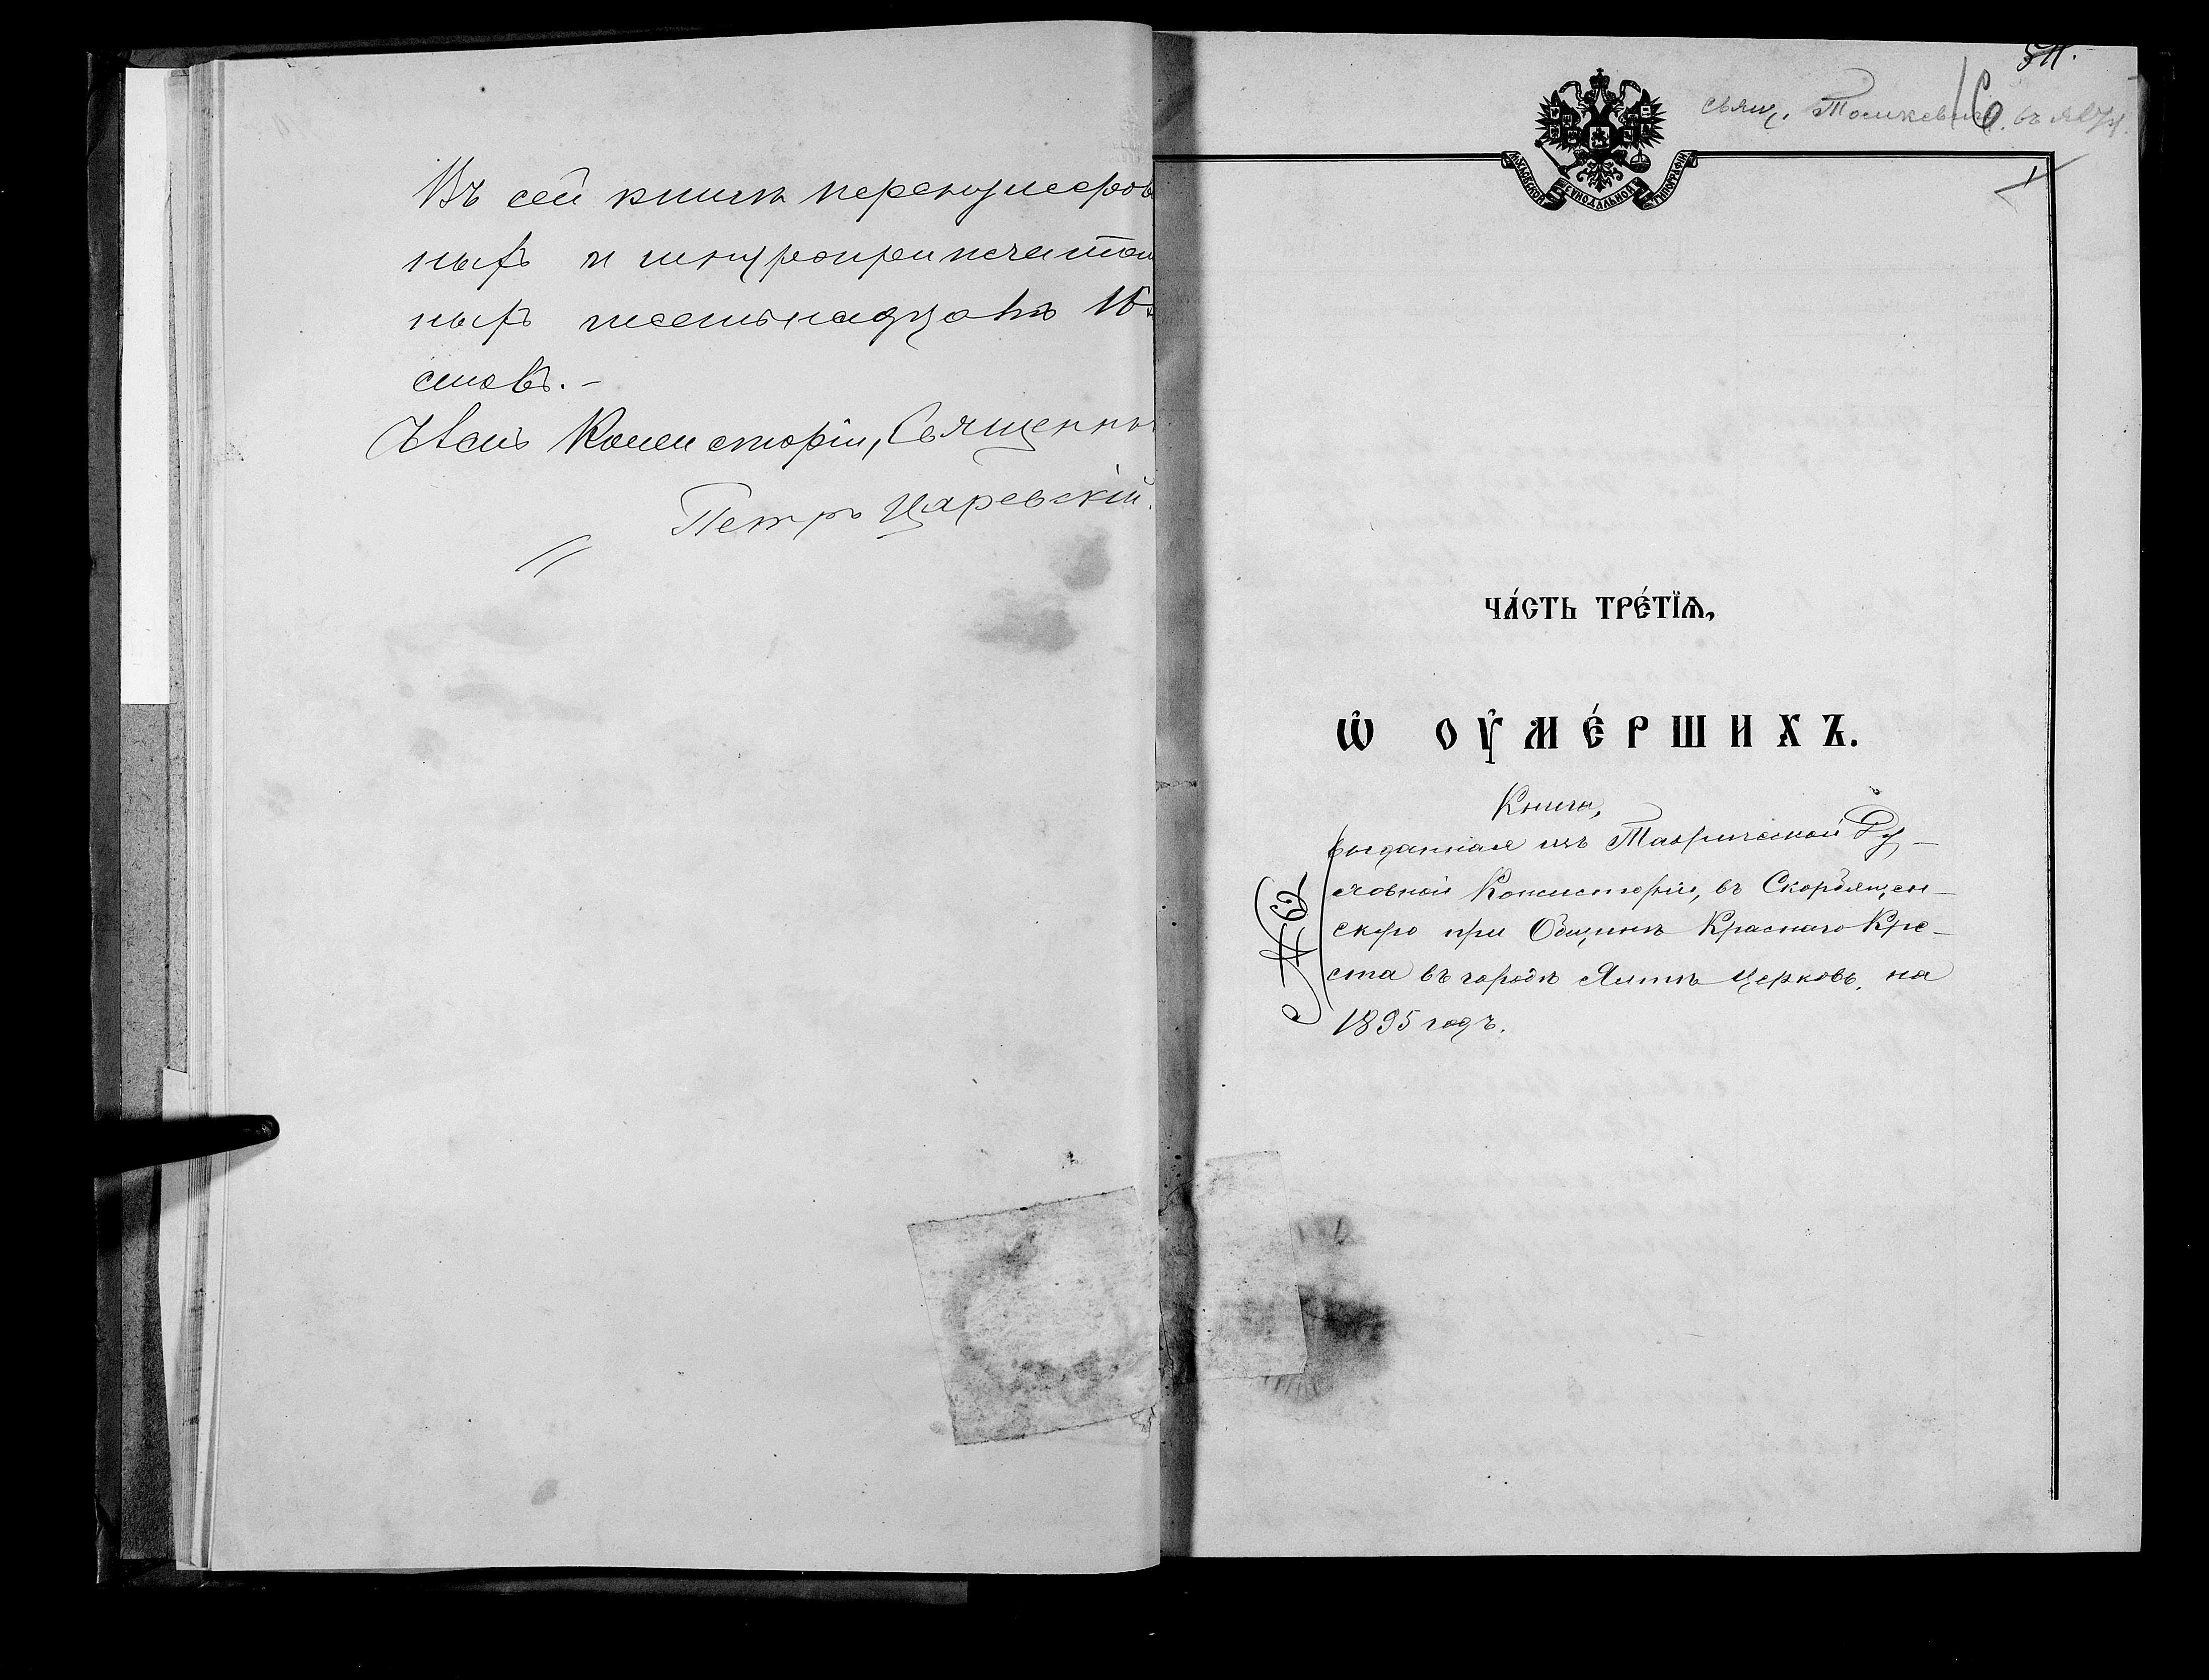 Въ сей книгѣ перенумеров
ныхъ и шнуроприпечатан
ныхъ шестьнадцать 16
стовъ. –
Членъ Консисторіи, Священни
Петръ Царевскій.
511.
свящ. Тошкевич. въ Ялту.
16
1
МОСКОВСКОЙ СѴНОДАЛЬНОЙ ТИПОГРАФІИ
ЧА́СТЬ ТРЕ́ТЇѦ,
Ѡ҆ ОУ҆МЕ́РШИХЪ.
Книга,
выданная изъ Таврической Ду-
ховной Консисторіи, въ Скорбящен-
скую при Общинѣ Краснаго Кре-
ста въ городѣ Ялтѣ церковь, на
1895 годъ.